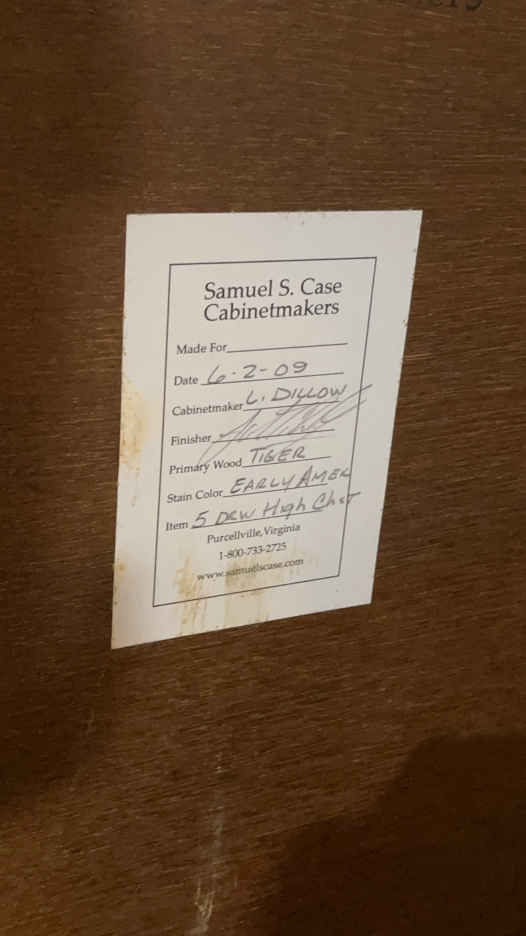 Samuel S. Case
Cabinetmakers
Made For
Date 6-2-09
Cabinetmaker L. DILLOW
Finisher
Primary Wood TIGER
Stain Color EARLY AMER
Item 5 DRW High Chst
Purcellville, Virginia
1-800-733-2725
www.samuelscase.com